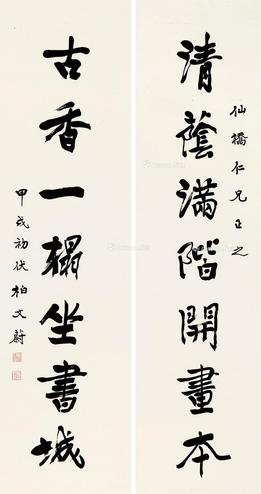 仙橋仁兄正之
清蔭滿階開畫本
古香一榻坐書城
甲戌初伏柏文蔚